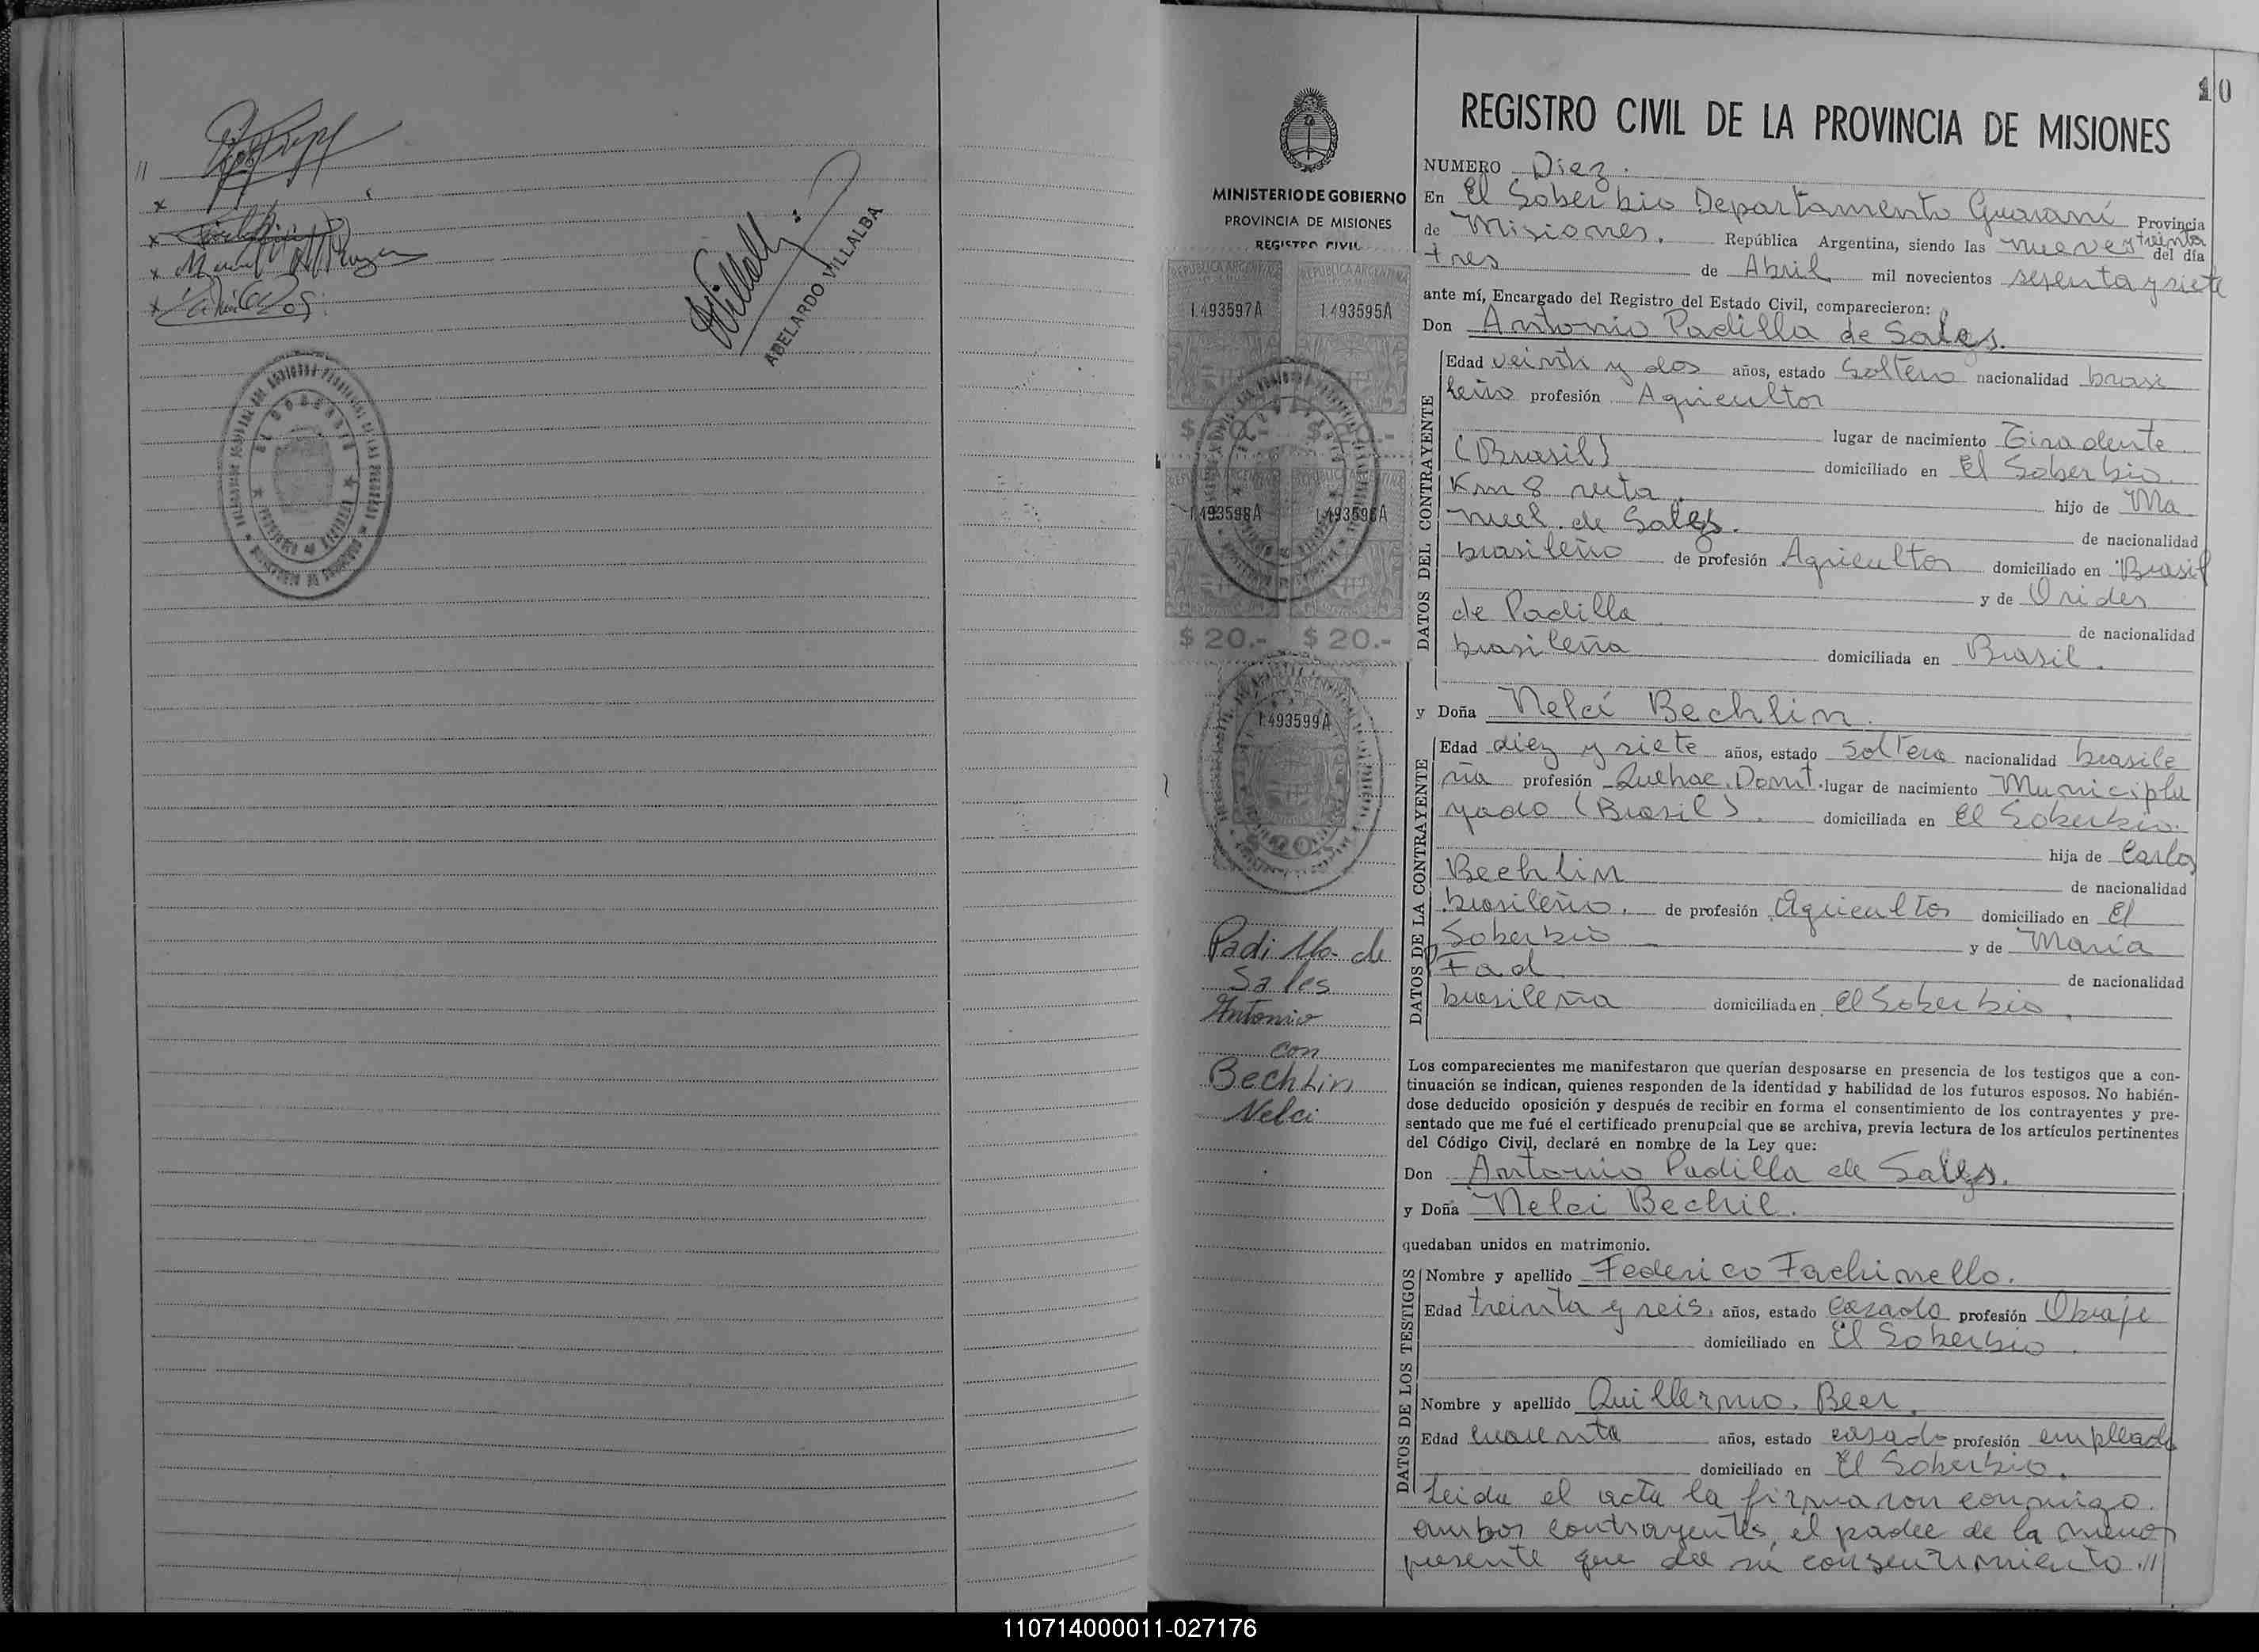 ABELARDO VILLALBA
10
REGISTRO CIVIL DE LA PROVINCIA DE MISIONES
MINISTERIO DE GOBIERNO
PROVINCIA DE MISIONES
REGISTRO CIVIL
REPUBLICA ARGENTINA REPUBLICA ARGENTINA
1.493597A 1.493595A
1.493598A 1.493596A
$ 20.- $ 20.-
1.493599A
Padilla de
Sales
Antonio
con
Bechlin
Nelci
NUMERO Diez.
En El Soberbio Departamento Guaraní Provincia
de Misiones. República Argentina, siendo las nueve y treinta del día
tres de Abril mil novecientos sesenta y siete
ante mí, Encargado del Registro del Estado Civil, comparecieron:
Don Antonio Padilla de Sales.
DATOS DEL CONTRAYENTE
Edad veinti y dos años, estado Soltero nacionalidad brasi
leño profesión Agricultor
lugar de nacimiento Tiradente
(Brasil) domiciliado en El Soberbio.
Km 8 ruta. hijo de Ma
nuel de Sales. de nacionalidad
brasileño de profesión Agricultor domiciliado en Brasil
y de Orides
de Padilla de nacionalidad
brasileña domiciliada en Brasil.
y Doña Nelcí Bechlin.
DATOS DE LA CONTRAYENTE
Edad diez y siete años, estado Soltera nacionalidad brasile
ña profesión Quehac. Domt. lugar de nacimiento Municiplu
yado (Brasil). domiciliada en El Soberbio.
hija de Carlos
Bechlin de nacionalidad
brasileño. de profesión Agricultor domiciliado en El
Soberbio y de María
Fad de nacionalidad
brasileña domiciliada en El Soberbio.
Los comparecientes me manifestaron que querían desposarse en presencia de los testigos que a con-
tinuación se indican, quienes responden de la identidad y habilidad de los futuros esposos. No habién-
dose deducido oposición y después de recibir en forma el consentimiento de los contrayentes y pre-
sentado que me fué el certificado prenupcial que se archiva, previa lectura de los artículos pertinentes
del Código Civil, declaré en nombre de la Ley que:
Don Antonio Padilla de Sales.
y Doña Nelci Bechil.
quedaban unidos en matrimonio.
DATOS DE LOS TESTIGOS
Nombre y apellido Federico Fachinello.
Edad treinta y seis. años, estado Casado profesión Obraje
domiciliado en El Soberbio.
Nombre y apellido Guillermo. Beer.
Edad cuarenta años, estado casado profesión empleado
domiciliado en El Soberbio.
Leida el acta la firmaron conmigo.
ambos contrayentes, el padre de la menor
presente que da su consentimiento.//
110714000011-027176